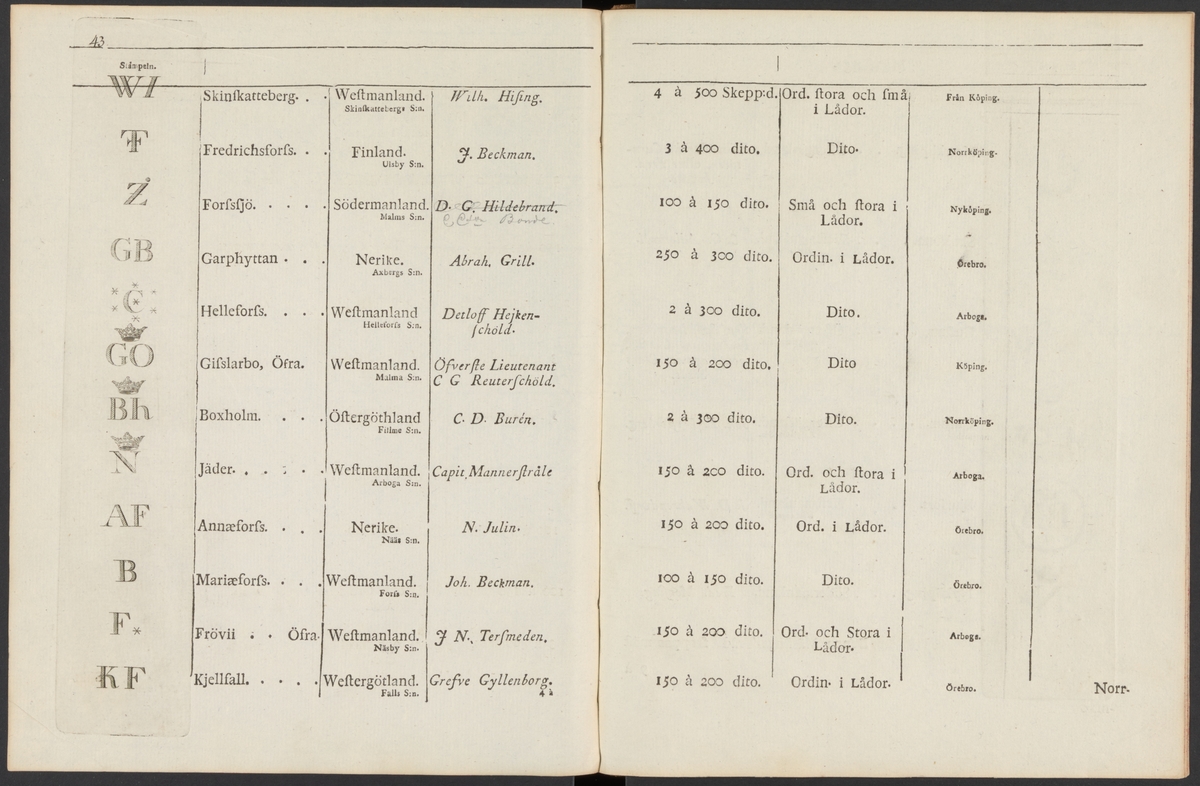 43
Stämpeln.
WI Skinſkatteberg. . . Weſtmanland. Wilh. Hiſing. 4 à 500 Skepp:d. Ord. ſtora och ſmå Från Köping.
Skinſkattebergs S:n. i Lådor.
Fredrichsforſs. . . Finland. J. Beckman. 3 à 400 dito. Dito. Norrköping.
Ulsby S:n.
Z Forſsſjö. . . . . Södermanland. D. G. Hildebrand. 100 à 150 dito. Små och ſtora i Nyköping.
Malms S:n. Bonde Lådor.
GB Garphyttan . . . Nerike. Abrah. Grill. 250 à 300 dito. Ordin. i Lådor. Örebro.
Axbergs S:n.
C Helleforſs. . . . Weſtmanland Detloff Hejken- 2 à 300 dito. Dito. Arboga.
Hellsforſs S:n. ſchöld.
GO Giſslarbo, Öfra. Weſtmanland. Öfverſte Lieutenant 150 à 200 dito. Dito Köping.
Malma S:n. C G Reuterſchöld.
Bh Boxholm. . . . Öſtergöthland C. D. Burén. 2 à 300 dito. Dito. Norrköping.
Fillme S:n.
N Jäder. . . . . Weſtmanland. Capit. Mannerſtråle 150 à 200 dito. Ord. och ſtora i Arboga.
Arboga S:n. Lådor.
AF Annæforſs. . . Nerike. N. Julin. 150 à 200 dito. Ord. i Lådor. Örebro.
Nääs S:n.
B Mariæforſs. . . . Weſtmanland. Joh. Beckman. 100 à 150 dito. Dito. Örebro.
Forſs S:n.
F* Frövii . . Öfra. Weſtmanland. J N. Terſmeden. 150 à 200 dito. Ord. och Stora i Arboga.
Näsby S:n. Lådor.
KF Kjellfall. . . . . Weſtergötland. Grefve Gyllenborg. 150 à 200 dito. Ordin. i Lådor. Örebro.
Falls S:n.
Norr-